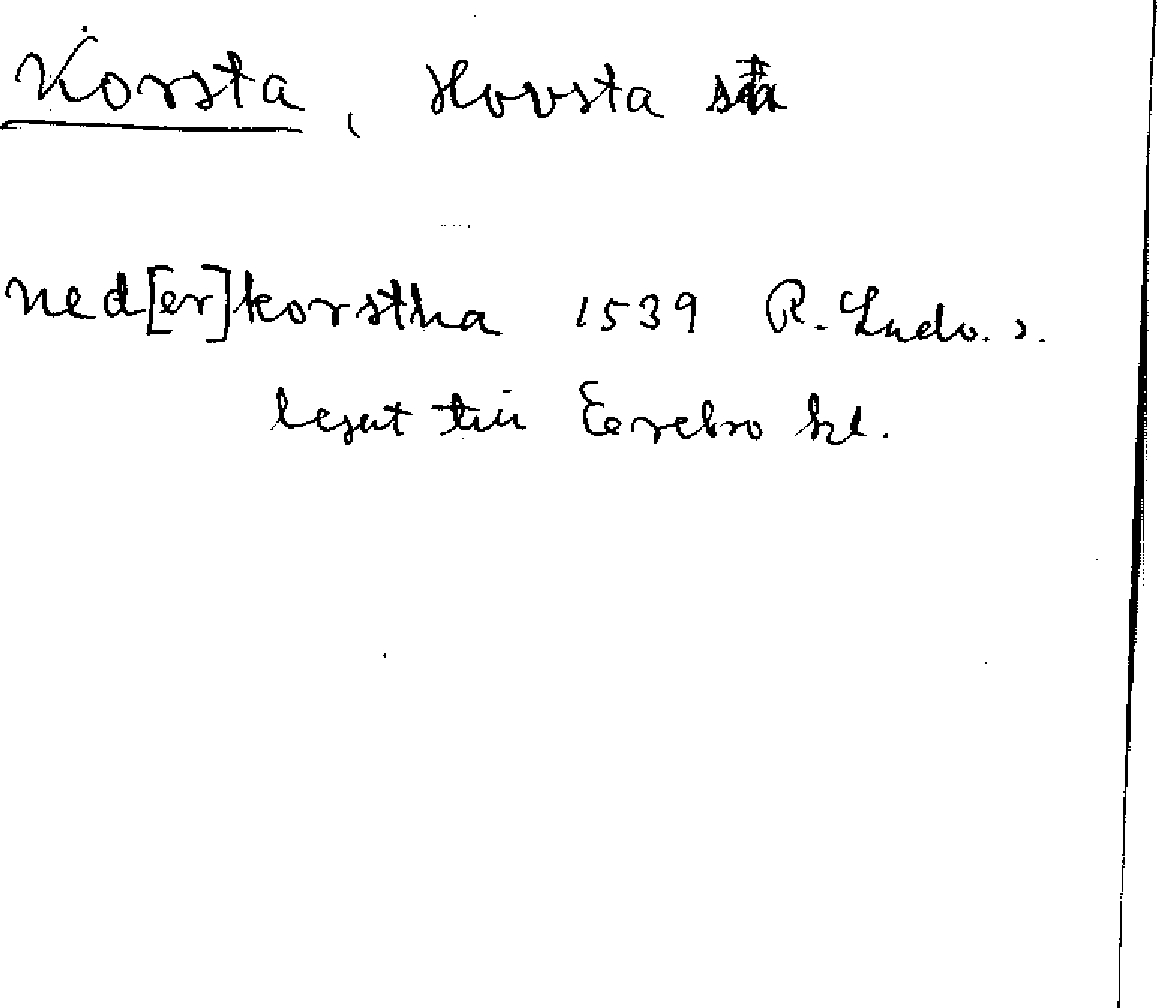 Korsta, Hovsta
ned[er]korstha 1539 R. Ludv. s.
till Örebro kl.